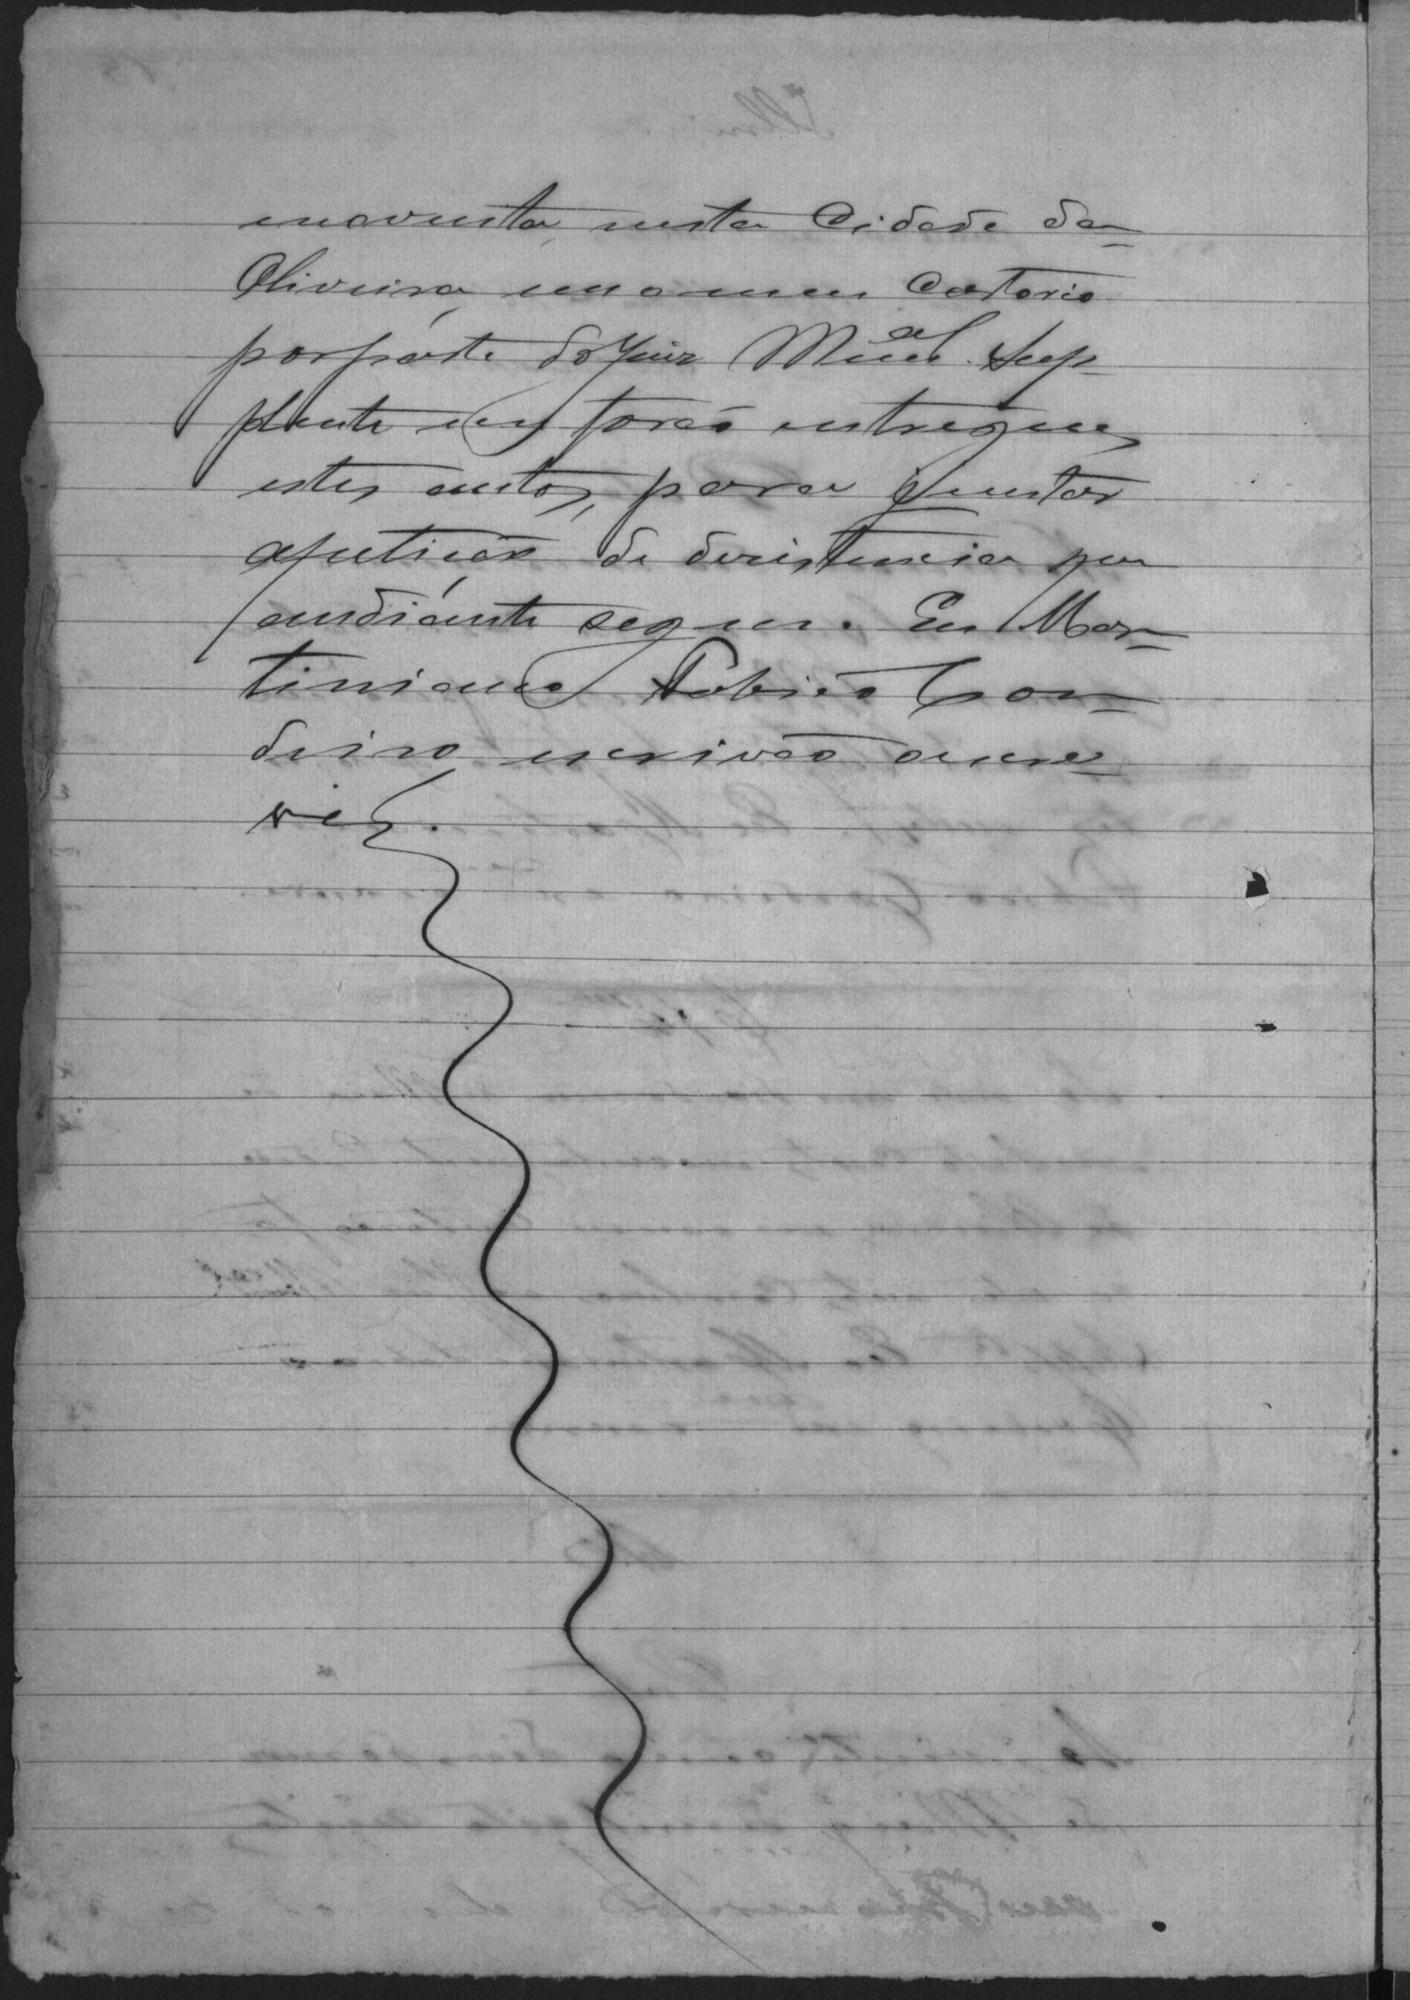 enoventa, nesta Cidade da
Oliveira, em o meu Cartorio
por parte do Juiz Mcal. Sup-
plente em forão entregues
estes autos, para juntar
apetição de desistencia que
audiante segue. Eu Mar-
tiniano Tobias Cor-
deiro escrivão oescre-
vi.